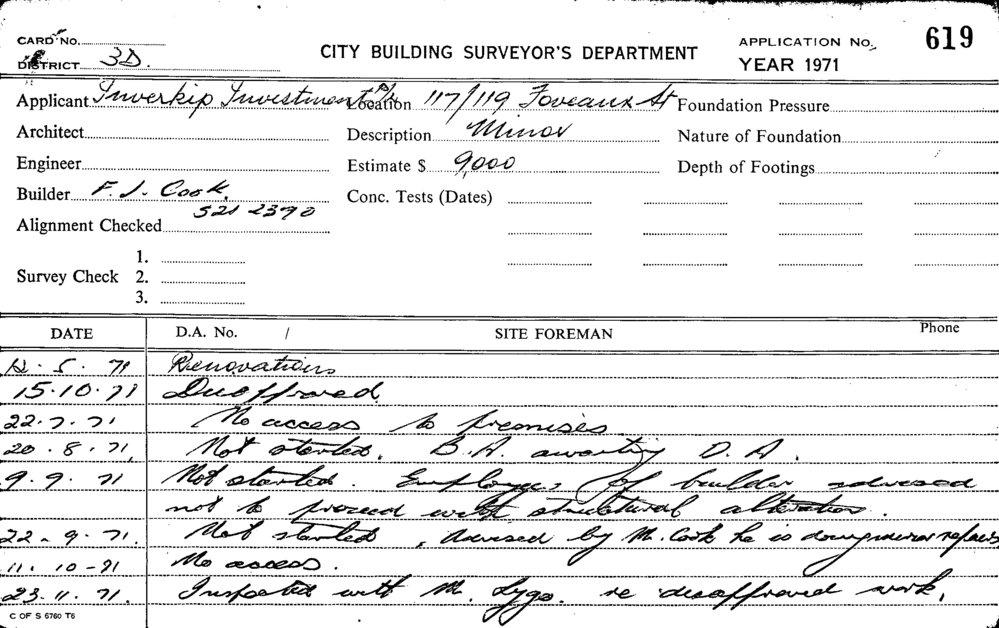 CARD No.
DISTRICT 3D.
CITY BUILDING SURVEYOR'S DEPARTMENT
APPLICATION No. 619
YEAR 1971
Applicant Inverkip Investment P/L Location 117/119 Foveaux St Foundation Pressure
Architect Description Minor Nature of Foundation
Engineer Estimate $ 9,000 Depth of Footings
Builder F. J. Cook. Conc. Tests (Dates)
521 2390
Alignment Checked
1.
Survey Check 2.
3.
DATE D.A. No. / SITE FOREMAN Phone
12.5.71 Renovations
15.10.71 Disapproved.
22.7.71 No access to premises
20.8.71. Not started. B.A. awaiting D.A.
9.9.71 Not started. Employees of builder advised
not to proceed with structural alteration.
22-9.71. Not started, Advised by Mr. Cook he is doing minor repairs
11.10-71 No access.
23.11.71. Inspected with Mr. Lygo. re disapproved work.
C OF S 6760 T6